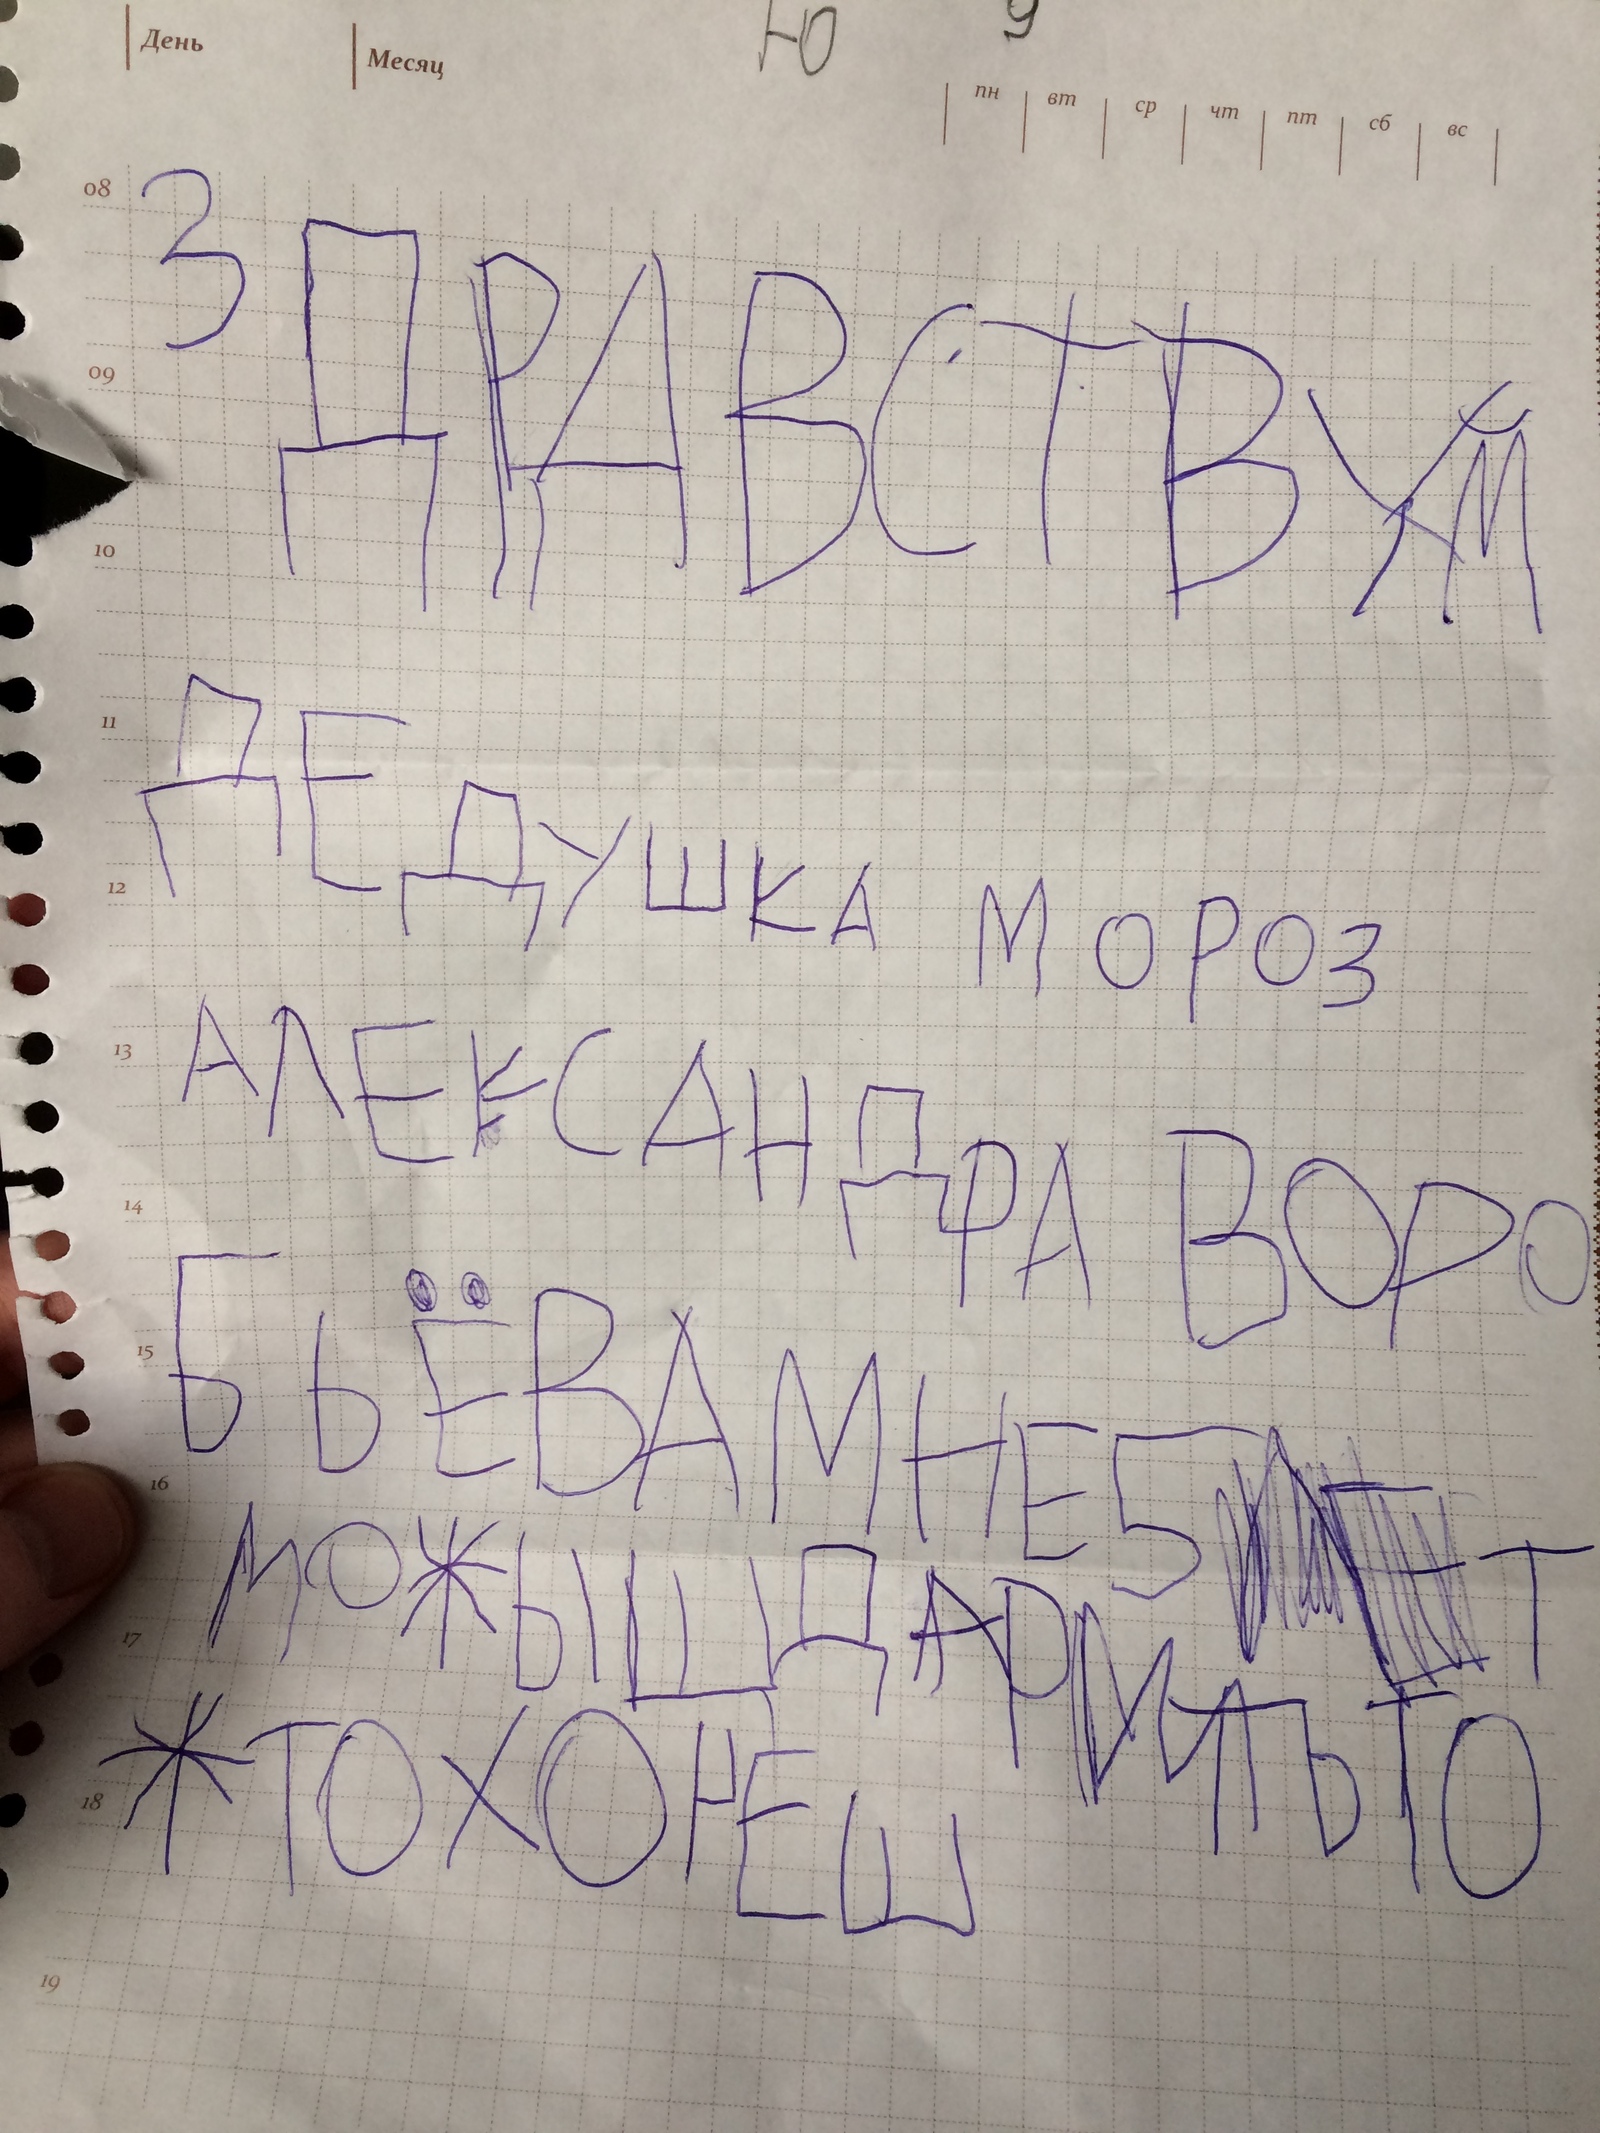 День Месяц Ю У
пн вт ср чт пт сб вс
08 ЗДРАВСТВУЙ
09
10
11 ДЕДУШКА МОРОЗ
12
13 АЛЕКСАНДРА ВОРО
14
15 БЬЁВА МНЕ 5 ЛЕТ
16 МОЖЫШ ДАРИТЬ ТО
17 ЖТО ХОЧЕШ
18
19